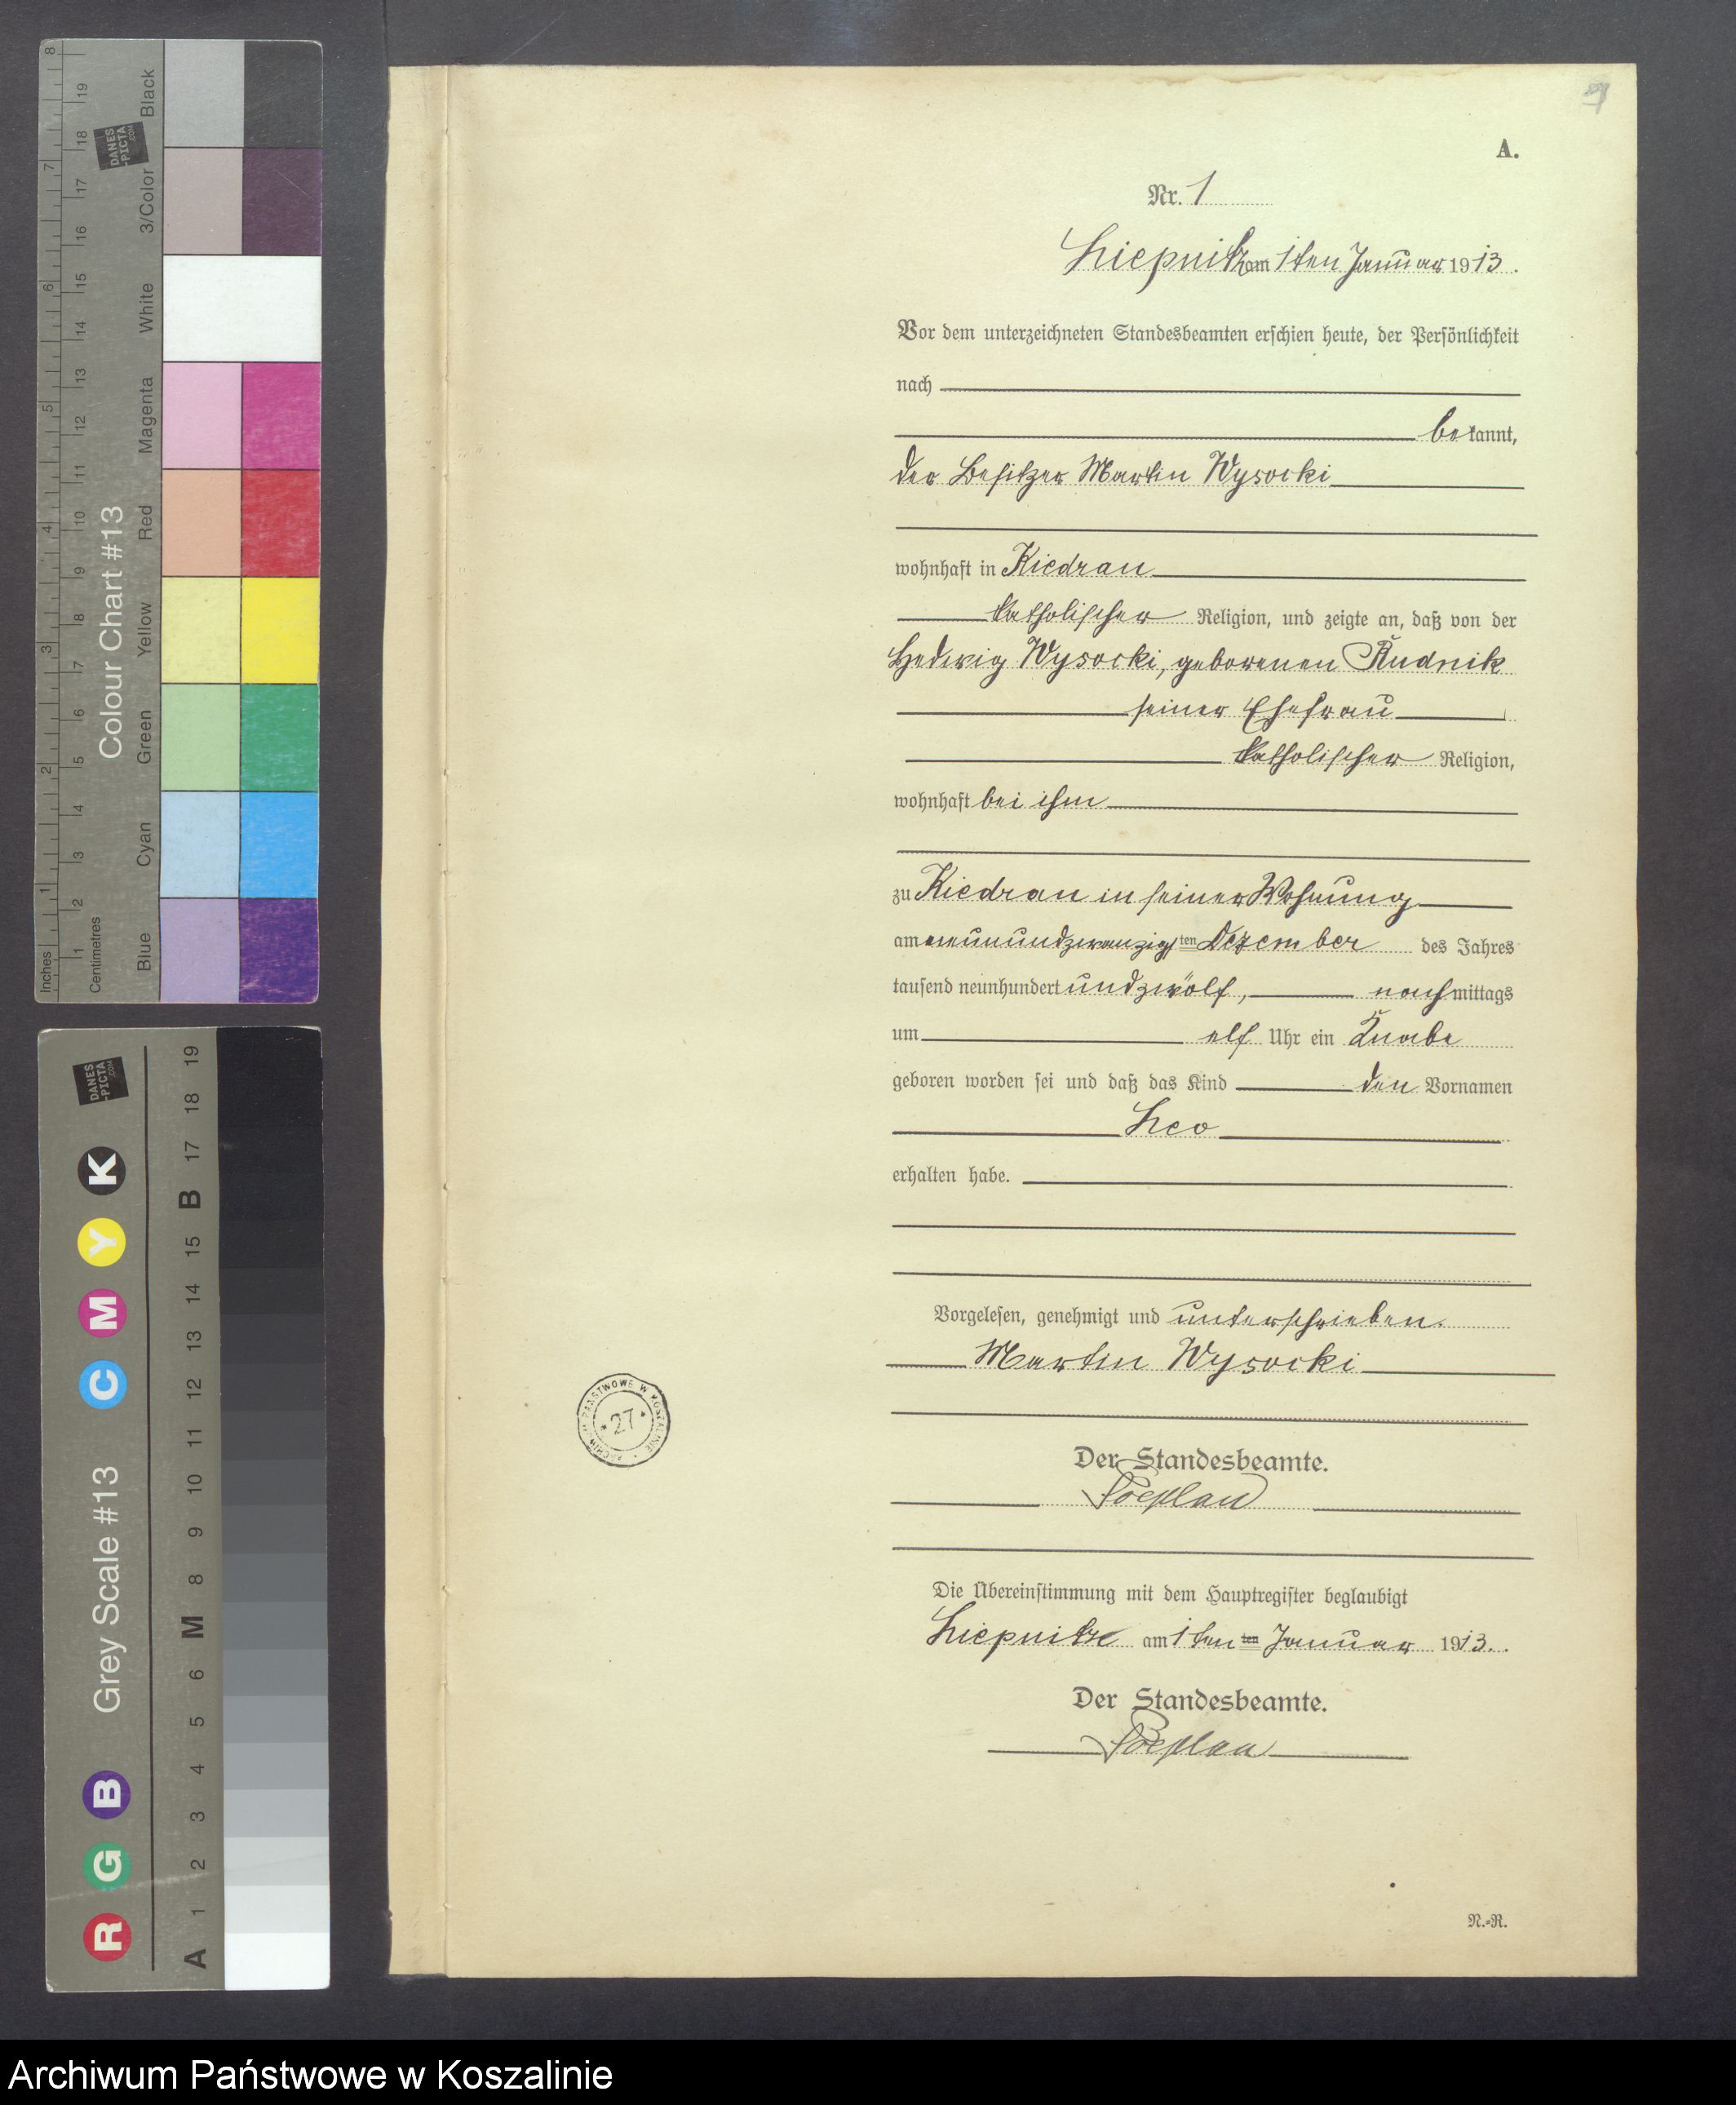 A.
Nr. 1
Liepnitz am 1ten Januar 1913.
Vor dem unterzeichneten Standesbeamten erschien heute, der Persönlichkeit
nach
bekannt,
der Besitzer Martin Wysocki
wohnhaft in Kiedrau
katholischer Religion, und zeigte an, daß von der
Hedwig Wysocki, geborenen Rudnik
seiner Ehefrau
katholischer Religion,
wohnhaft bei ihm
zu Kiedrau in seiner Wohnung
am neunundzwanzigsten Dezember des Jahres
tausend neunhundert und zwölf, nachmittags
um elf Uhr ein Knabe
geboren worden sei und daß das Kind den Vornamen
Leo
erhalten habe.
Vorgelesen, genehmigt und unterschrieben.
Martin Wysocki
Der Standesbeamte.
Poeplau
Die Übereinstimmung mit dem Hauptregister beglaubigt
Liepnitz am 1ten ten Januar 1913.
Der Standesbeamte.
Poeplau
N.-R.
ARCHIWUM PAŃSTWOWE W KOSZALINIE
* 27 *
Inches
1 2 3 4 5 6 7 8
Centimetres
1 2 3 4 5 6 7 8 9 10 11 12 13 14 15 16 17 18 19
Colour Chart #13
Blue Cyan Green Yellow Red Magenta White 3/Color Black
DANES
-PICTA
.COM
Grey Scale #13
R G B C M Y K
A 1 2 3 4 5 6 M 8 9 10 11 12 13 14 15 B 17 18 19
DANES
-PICTA
.COM
Archiwum Państwowe w Koszalinie